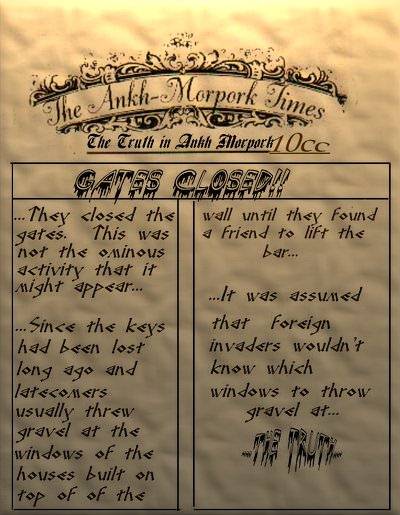 The Ankh-Morpork Times
The Truth in Ankh Morpork 10cc
GATES CLOSED!!
...They closed the
gates. This was
not the ominous
activity that it
might appear...
...Since the keys
had been lost
long ago and
latecomers
usually threw
gravel at the
windows of the
houses built on
top of of the
wall until they found
a friend to lift the
bar...
...It was assumed
that foreign
invaders wouldn't
know which
windows to throw
gravel at...
...THE TRUTH...